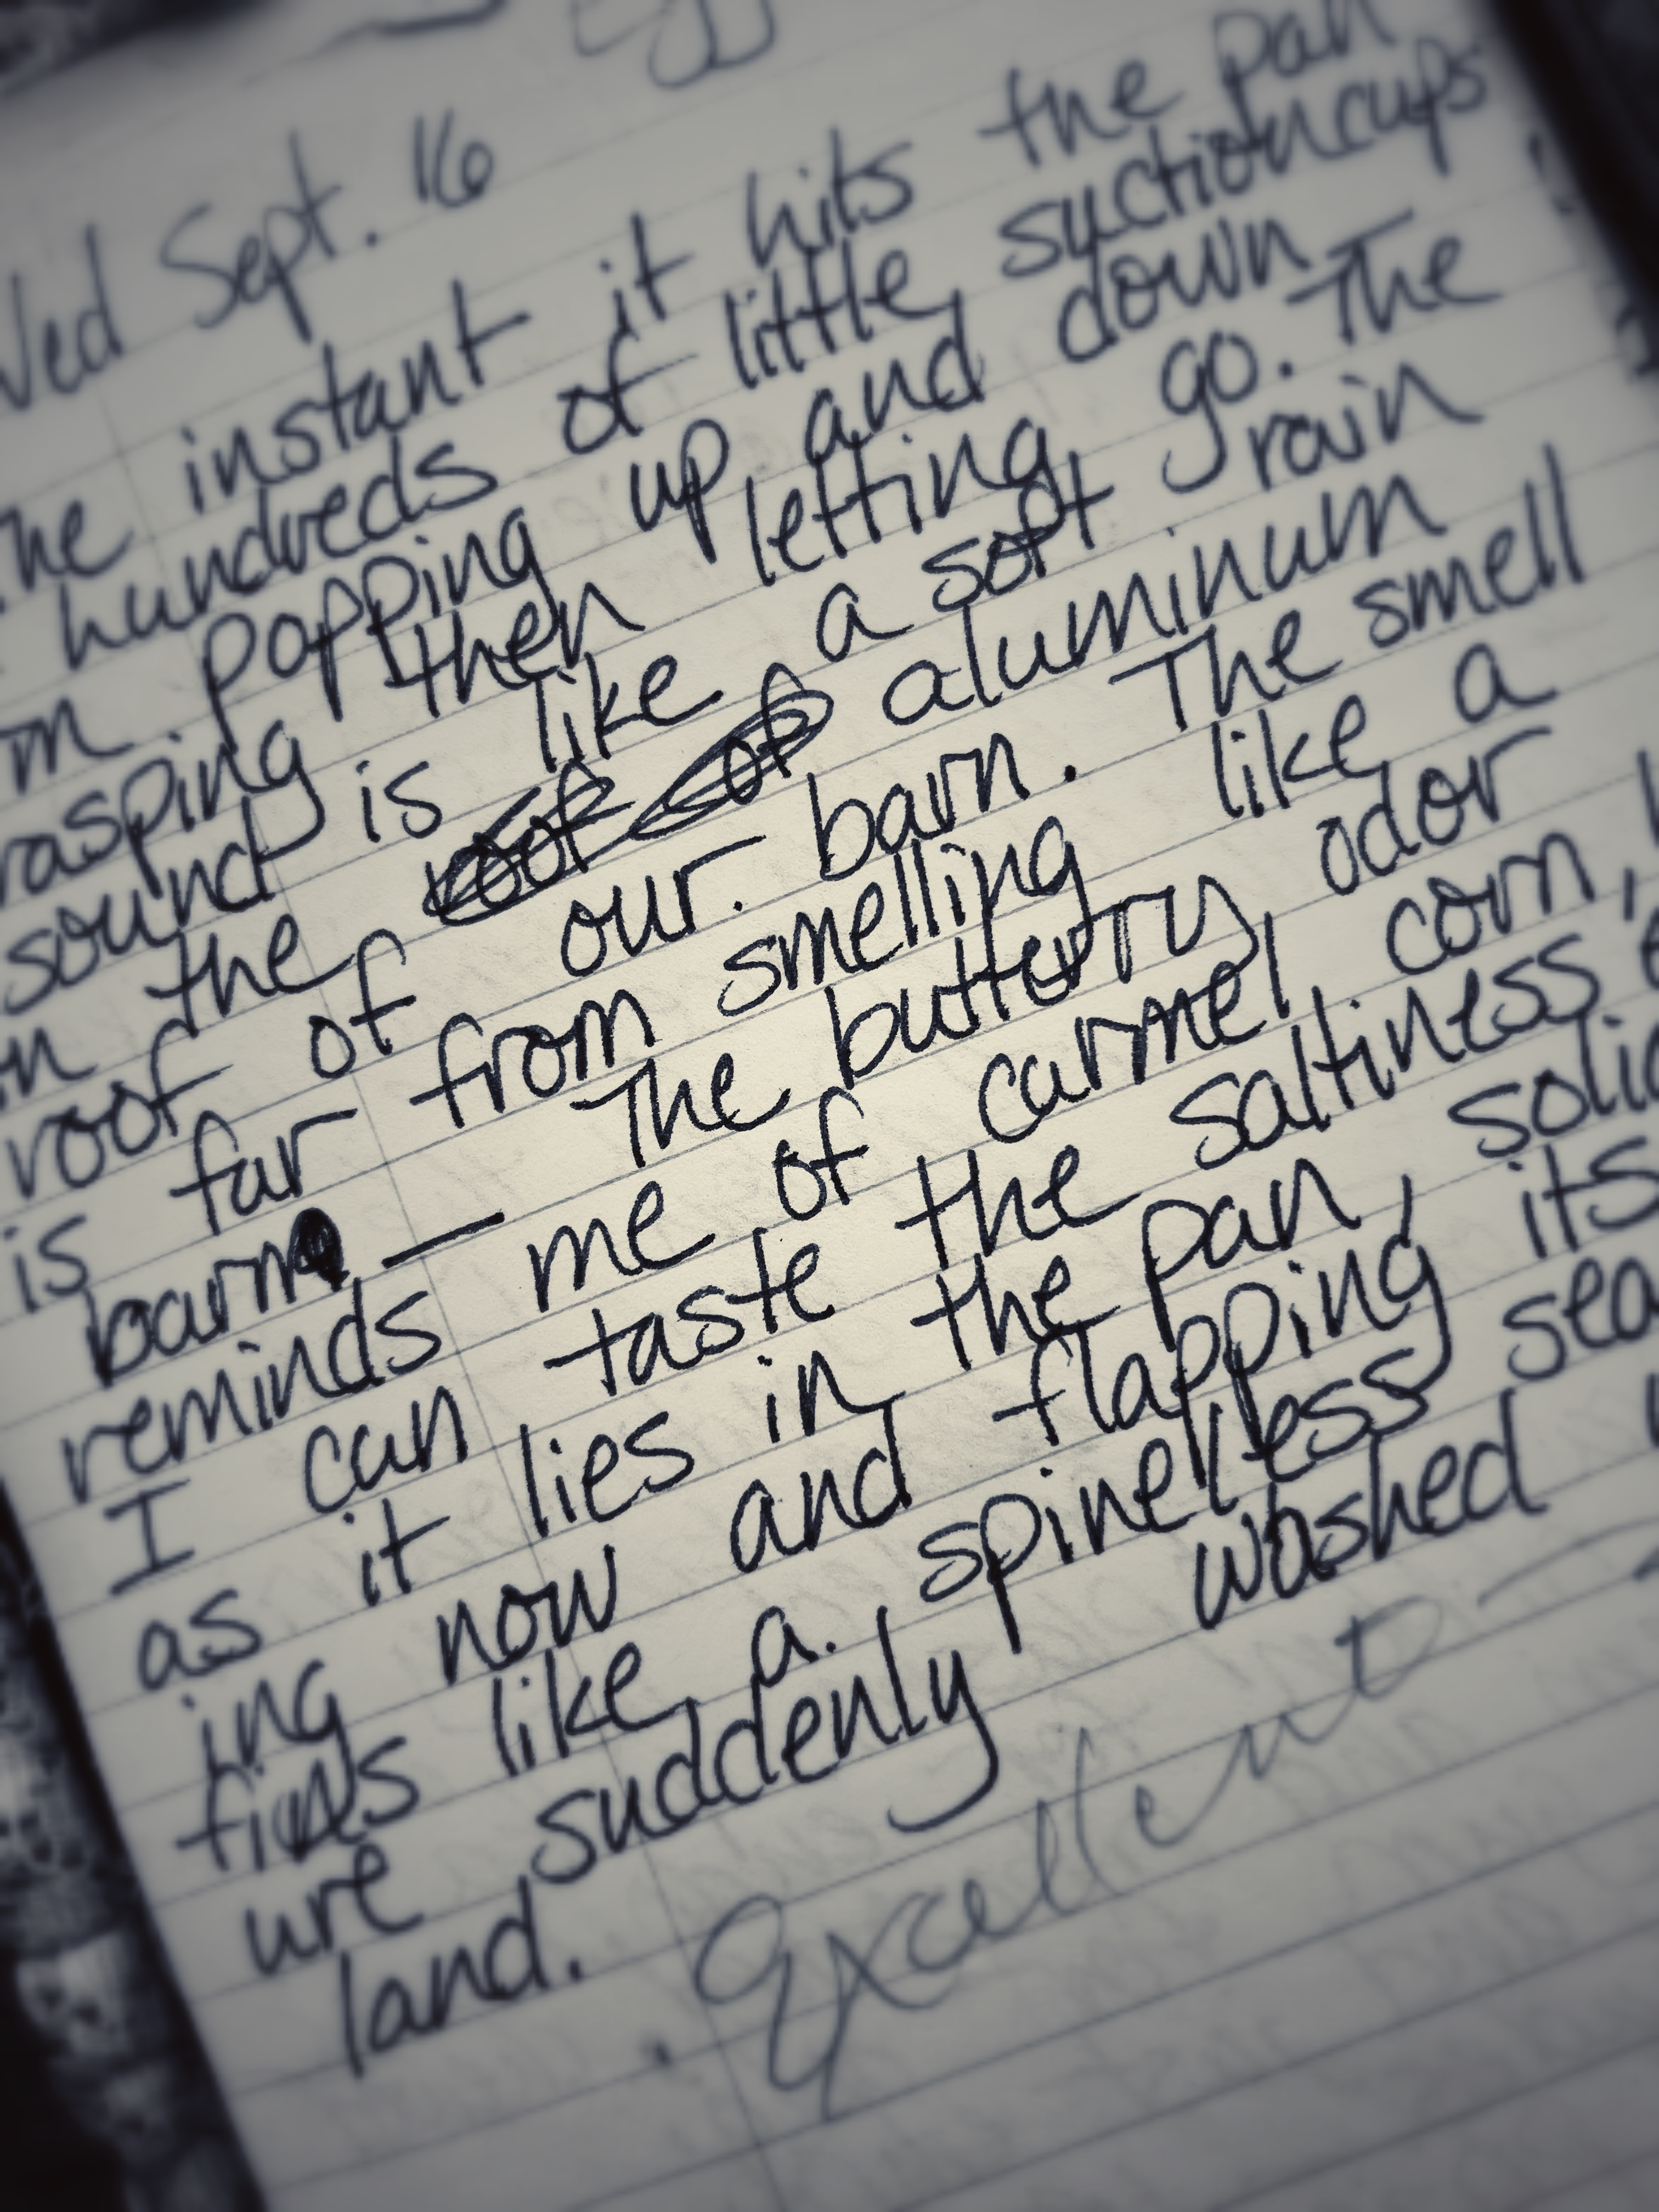 Wed Sept. 16
The instant it hits the pan
hundreds of little suctioncups
popping up and down
rasping then letting go. The
sound is like a soft rain
on the roof of aluminum
roof of our barn. The smell
is far from smelling like a
barn — The buttery odor
reminds me of carmel corn,
I can taste the saltiness
as it lies in the pan, solid
ing now and flapping its
fins like a spineless sea
ure suddenly washed
land.
Excellent